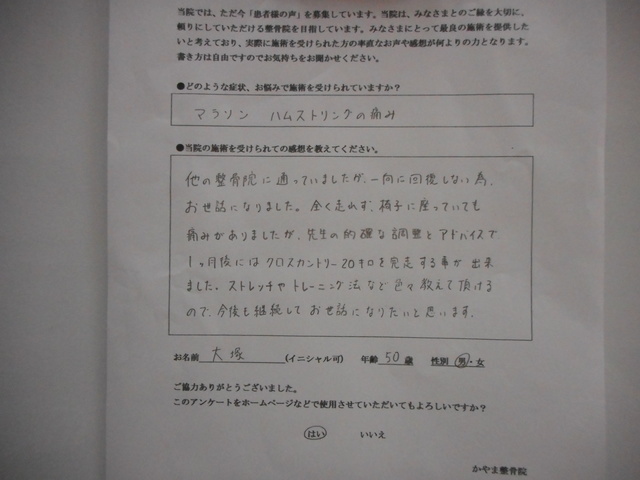 当院では、ただ今「患者様の声」を募集しています。当院は、みなさまとのご縁を大切に、
頼りにしていただける整骨院を目指しています。みなさまにとって最良の施術を提供した
いと考えており、実際に施術を受けられた方の率直なお声や感想が何よりの力となります。
書き方は自由ですのでお気持ちをお聞かせください。
●どのような症状、お悩みで施術を受けられていますか?
マラソン ハムストリングの痛み
●当院の施術を受けられての感想を教えてください。
他の整骨院に通っていましたが、一向に回復しない為、
お世話になりました。全く走れず、椅子に座っていても
痛みがありましたが、先生の的確な調整とアドバイスで
1ヶ月後にはクロスカントリー20キロを完走する事が出来
ました。ストレッチやトレーニング法など色々教えて頂ける
ので、今後も継続してお世話になりたいと思います。
お名前 大塚 (イニシャル可) 年齢 50 歳 性別 男・女
ご協力ありがとうございました。
このアンケートをホームページなどで使用させていただいてもよろしいですか?
はい いいえ
かやま整骨院